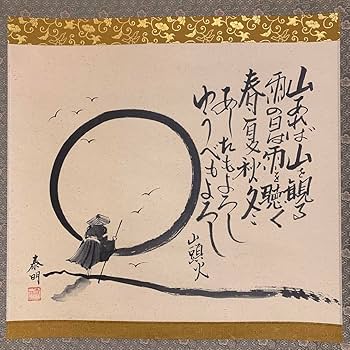 山あれば山を観る
雨の日は雨を聴く
春夏秋冬
あしたもよろし
ゆうべもよろし
山頭火
泰明